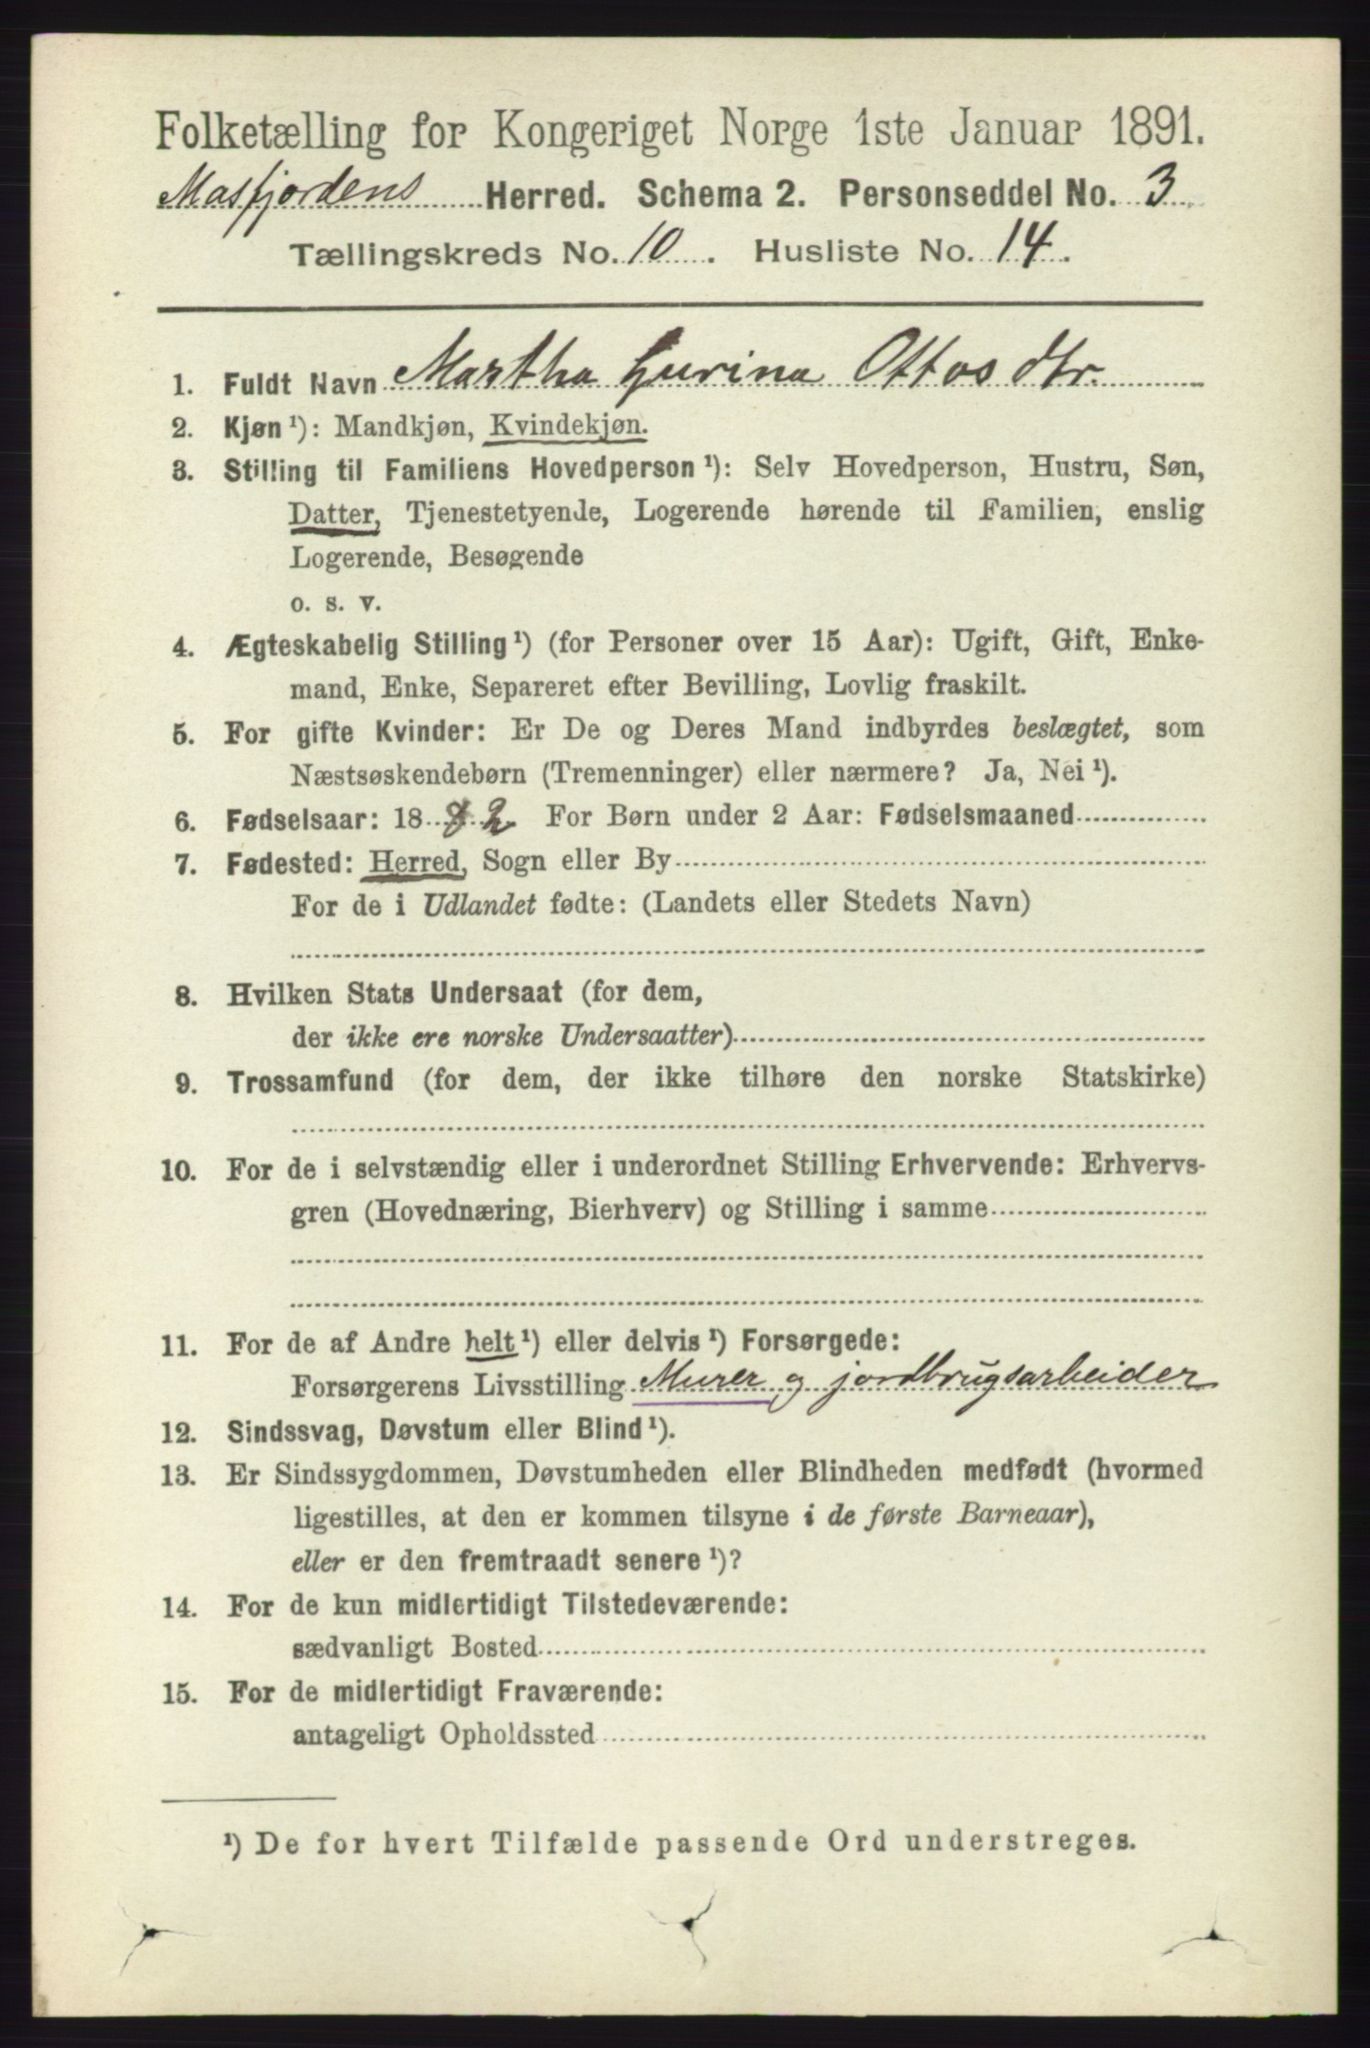 Folketælling for Kongeriget Norge 1ste Januar 1891.
Masfjordens Herred. Schema 2. Personseddel No. 3
Tællingskreds No. 10. Husliste No. 14.
1. Fuldt Navn Martha Gurina Ottos dtr.
2. Kjøn ¹): Mandkjøn, Kvindekjøn.
3. Stilling til Familiens Hovedperson ¹): Selv Hovedperson, Hustru, Søn,
Datter, Tjenestetyende, Logerende hørende til Familien, enslig
Logerende, Besøgende
o. s. v.
4. Ægteskabelig Stilling ¹) (for Personer over 15 Aar): Ugift, Gift, Enke-
mand, Enke, Separeret efter Bevilling, Lovlig fraskilt.
5. For gifte Kvinder: Er De og Deres Mand indbyrdes beslægtet, som
Næstsøskendebørn (Tremenninger) eller nærmere? Ja, Nei ¹).
6. Fødselsaar: 1882 For Børn under 2 Aar: Fødselsmaaned
7. Fødested: Herred, Sogn eller By
For de i Udlandet fødte: (Landets eller Stedets Navn)
8. Hvilken Stats Undersaat (for dem,
der ikke ere norske Undersaatter)
9. Trossamfund (for dem, der ikke tilhøre den norske Statskirke)
10. For de i selvstændig eller i underordnet Stilling Erhvervende: Erhvervs-
gren (Hovednæring, Bierhverv) og Stilling i samme
11. For de af Andre helt ¹) eller delvis ¹) Forsørgede:
Forsørgerens Livsstilling Murer og jordbrugsarbeider
12. Sindssvag, Døvstum eller Blind ¹).
13. Er Sindssygdommen, Døvstumheden eller Blindheden medfødt (hvormed
ligestilles, at den er kommen tilsyne i de første Barneaar),
eller er den fremtraadt senere ¹)?
14. For de kun midlertidigt Tilstedeværende:
sædvanligt Bosted
15. For de midlertidigt Fraværende:
antageligt Opholdssted
¹) De for hvert Tilfælde passende Ord understreges.